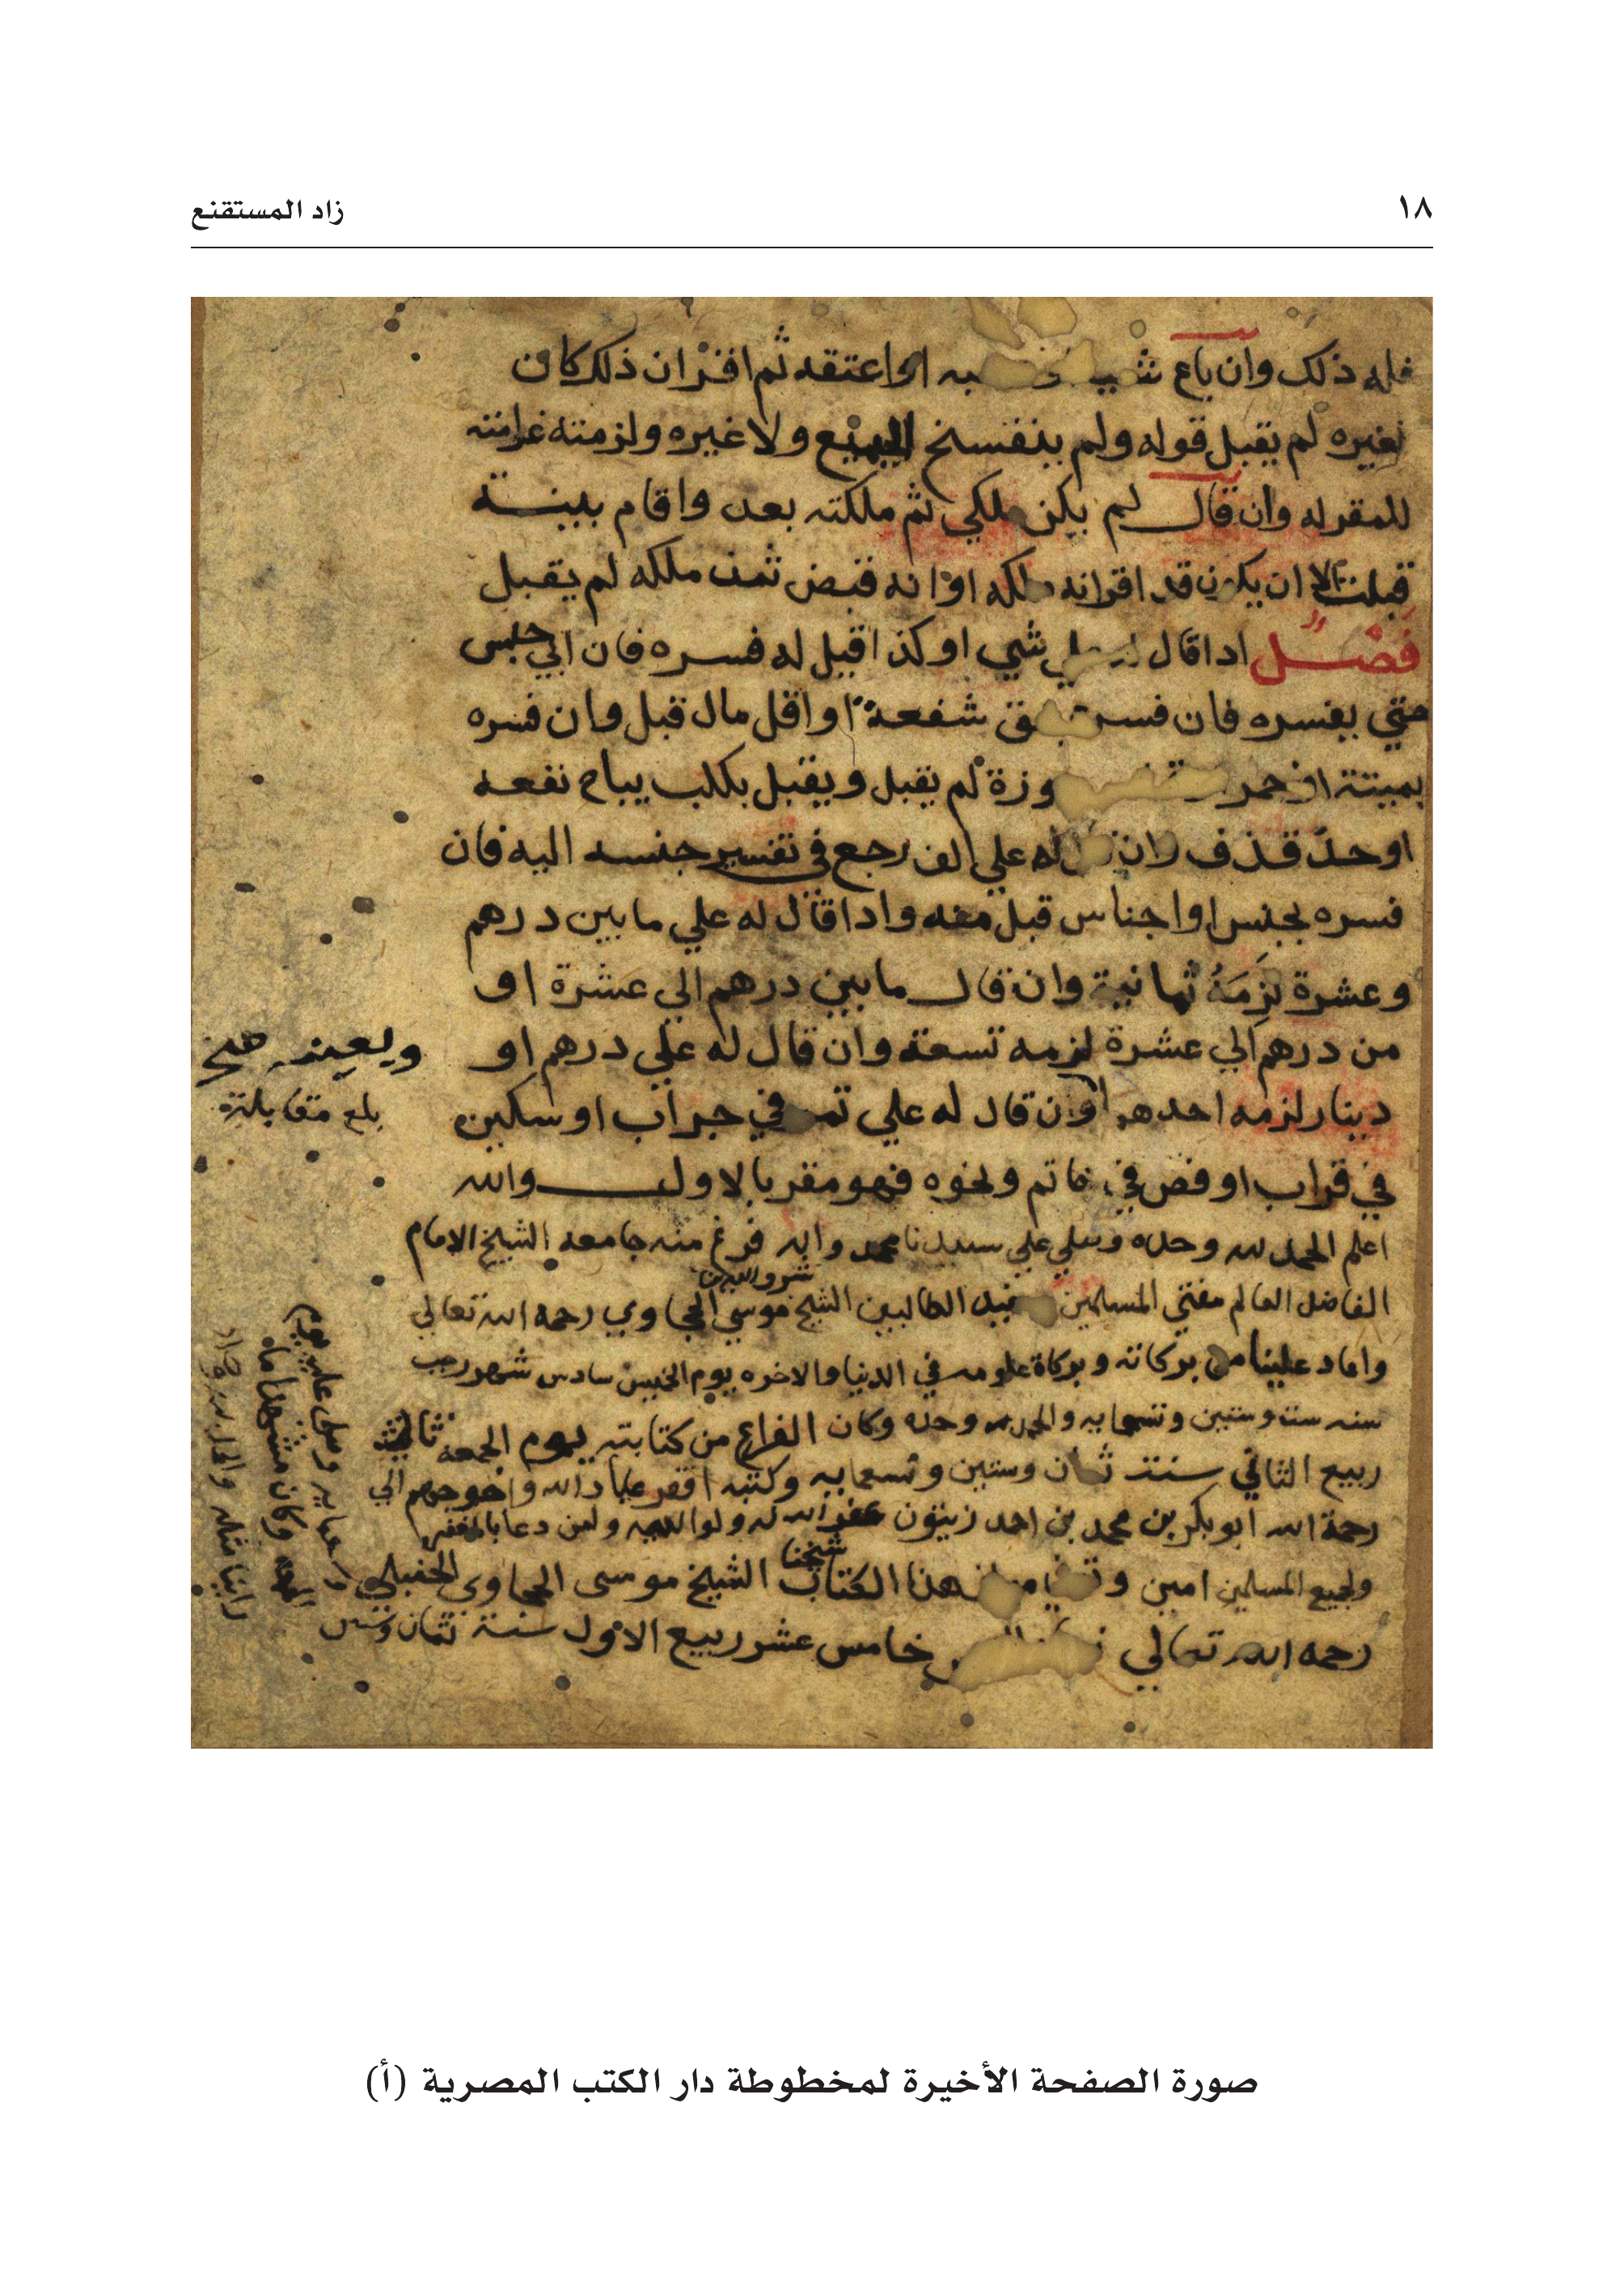 ١٨
زاد المستقنع
فله ذلك وان باع او اعتقه ثم اقر ان ذلك كان
لغيره لم يقبل قوله ولم ينفسخ البيع ولا غيره ولزمته غرامته
للمقر له وان قال لم يكن ملكي ثم ملكته بعد واقام ببينة
قبلت الا ان يكون قد اقر انه ملكه او انه قبض ثمن ملكه لم يقبل
فصل اذا قال علي شي او كذا قيل له فسره فان ابي حبس
حتي يفسره فان فسره بحق شفعة او اقل مال قبل وان فسره
بميتة او خمر لم يقبل ويقبل بكلب يباح نفعه
او حد قذف وان قال له علي الف رجع في تفسير جنسه اليه فان
فسره بجنس او اجناس قبل منه واذا قال له علي ما بين درهم
وعشرة لزمه ثمانية وان قال ما بين درهم الي عشرة او
من درهم الي عشرة لزمه تسعة وان قال له علي درهم او
دينار لزمه احدهما وان قال له علي تمر في جراب او سكين
في قراب او فص في خاتم ونحوه فهو مقر بالاول والله
اعلم الحمد لله وحده وصلي علي سيدنا محمد واله فرغ منه جامعه الشيخ الامام
الفاضل العالم مفتي المسلمين مفيد الطالبين الشيخ شرف الدين موسي الحجاوي رحمه الله تعالي
واعاد علينا من بركاته وبركاة علومه في الدنيا والاخره يوم الخميس سادس شهر رجب
سنه ست وستين وتسعمايه والحمد لله وحده وكان الفراغ من كتابته يوم الجمعه ثالث
ربيع الثاني سنة ثمان وستين وتسعمايه وكتبه افقر عباد الله واحوجهم الي
رحمة الله ابو بكر بن محمد بن احمد زيتون غفر الله له ولوالديه ولمن دعا بالمغفره
ولجميع المسلمين امين هذا الكتاب شيخنا الشيخ موسى الحجاوي الحنبلي
رحمه الله تعالي خامس عشر ربيع الاول سنة ثمان وستين
ويعينه صح
بلغ مقابلة
صورة الصفحة الأخيرة لمخطوطة دار الكتب المصرية (أ)